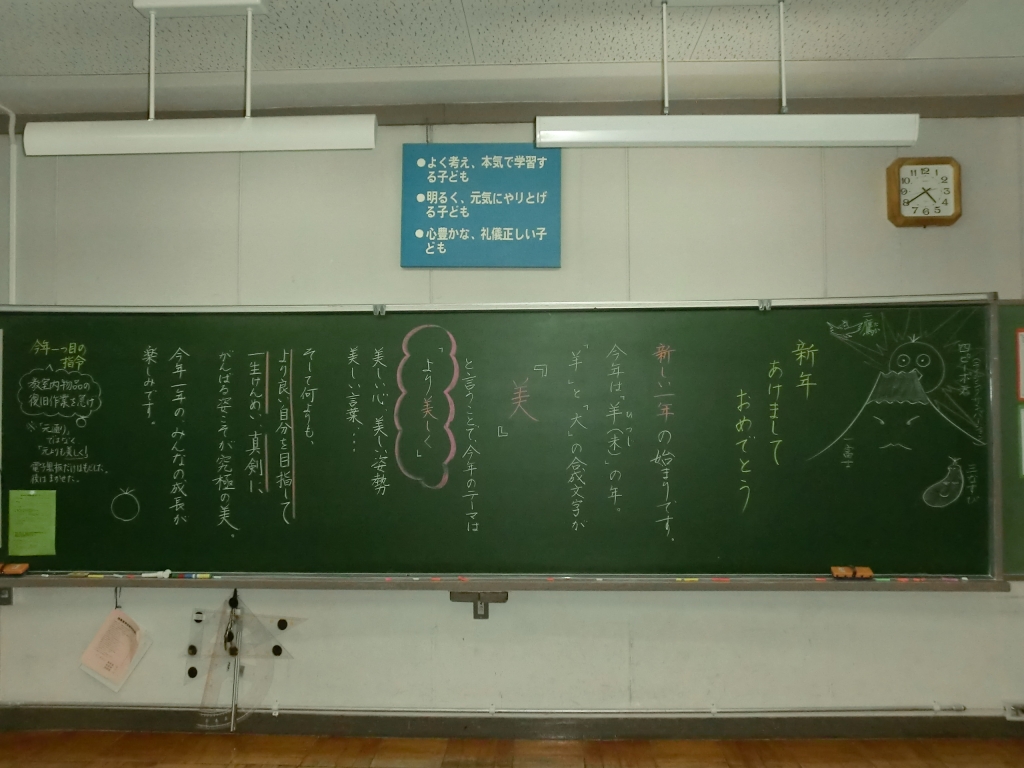 ●よく考え、本気で学習す
る子ども
●明るく、元気にやりとげ
る子ども
●心豊かな、礼儀正しい子
ども
新年
あけまして
おめでとう
新しい一年の始まりです。
今年は「羊(未)」の年。
ひつじ
「羊」と「大」の合成文字が
『
美
』
と言うことで、今年のテーマは
「より美しく」
美しい心、美しい姿勢
美しい言葉…
そして何よりも、
より良い自分を目指して
一生けんめい、真剣に、
がんばる姿こそが究極の美。
今年一年の、みんなの成長が
楽しみです。
今年一つ目の
指令
教室内物品の
復旧作業を急げ
※「元通り」
ではなく
「元よりも美しく」
電子黒板だけはもどした。
後はまかせた。
一富士
二鷹
三なすび
11 12 1
10 2
9 3
8 4
7 6 5